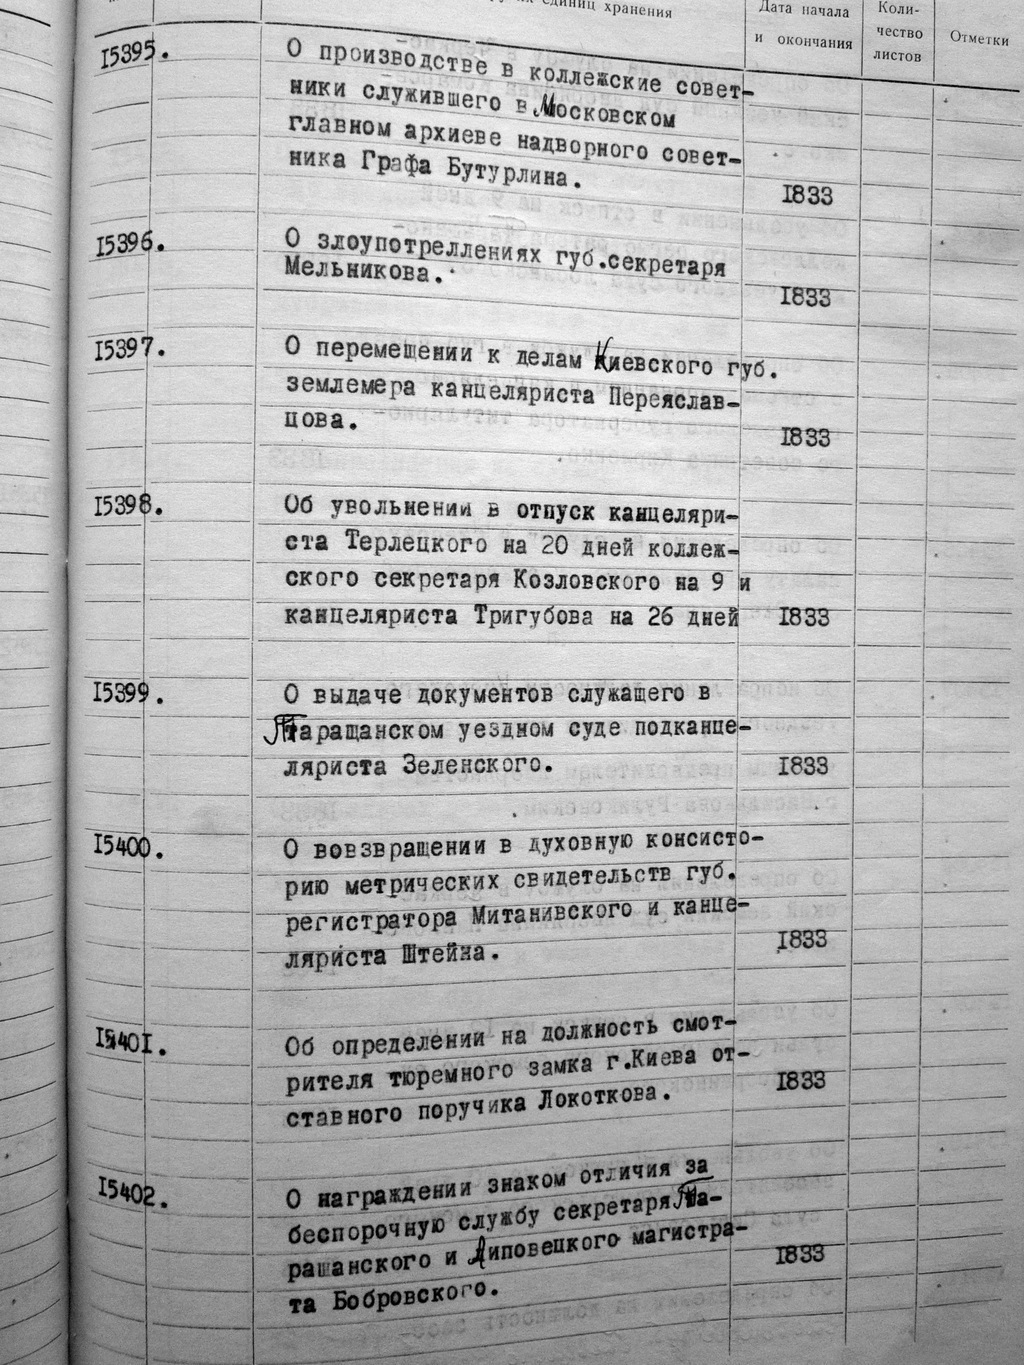 единиц хранения
Дата начала
и окончания
Коли-
чество
листов
Отметки
15395.
О производстве в коллежские совет-
ники служившего в Московском
главном архиеве надворного совет-
ника Графа Бутурлина.
1833
15396.
О злоупотреллениях губ.секретаря
Мельникова.
1833
15397.
О перемещении к делам Киевского губ.
землемера канцеляриста Переяслав-
цова.
1833
15398.
Об увольнении в отпуск канцеляри-
ста Терлецкого на 20 дней коллеж-
ского секретаря Козловского на 9 и
канцеляриста Тригубова на 26 дней
1833
15399.
О выдаче документов служащего в
Таращанском уездном суде подканце-
ляриста Зеленского.
1833
15400.
О вовзвращении в духовную консисто-
рию метрических свидетельств губ.
регистратора Митанивского и канце-
ляриста Штейна.
1833
15401.
Об определении на должность смот-
рителя тюремного замка г.Киева от-
ставного поручика Локоткова.
1833
15402.
О награждении знаком отличия за
беспорочную службу секретаря Та-
рашанского и Липовецкого магистра-
та Бобровского.
1833